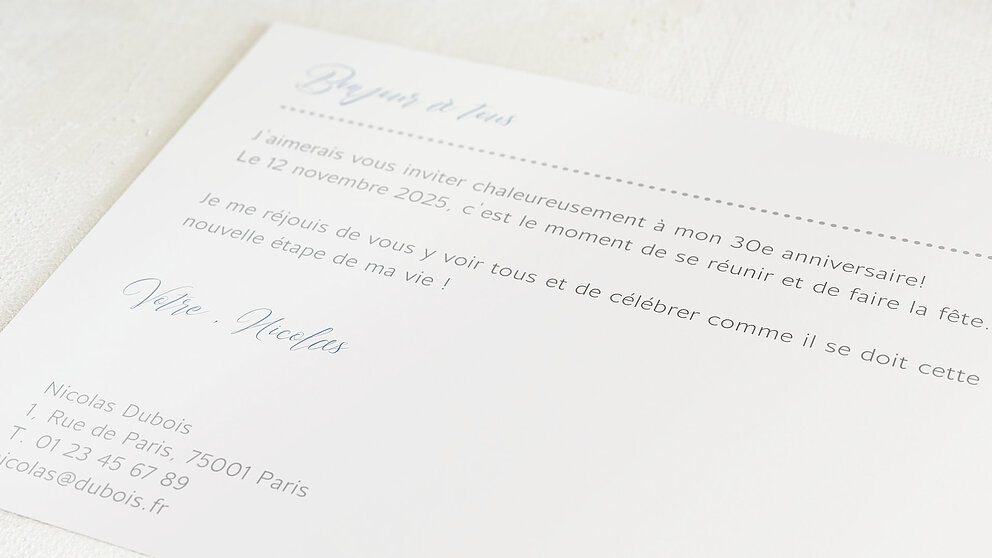 Bonjour à tous
J'aimerais vous inviter chaleureusement à mon 30e anniversaire!
Le 12 novembre 2025, c'est le moment de se réunir et de faire la fête.
Je me réjouis de vous y voir tous et de célébrer comme il se doit cette
nouvelle étape de ma vie !
Votre , Nicolas
Nicolas Dubois
1, Rue de Paris, 75001 Paris
T. 01 23 45 67 89
nicolas@dubois.fr